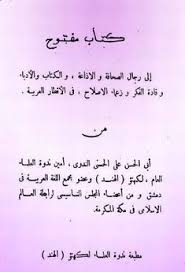 كتاب مفتوح
إلى رجال الصحافة و الاذاعة ، و الكتاب والأدباء
و قادة الفكر و زعماء الاصلاح ، فى الأقطار العربية .
من
أبى الحسن على الحسنى الندوى ، أمين ندوة العلماء
العام ، لكهنؤ ( الهند ) و عضو مجمع اللغة العربية فى
دمشق و من أعضاء المجلس التأسيسى لرابطة العالم
الاسلامى فى مكة المكرمة .
مطبعة ندوة العلماء لكهنؤ ( الهند )